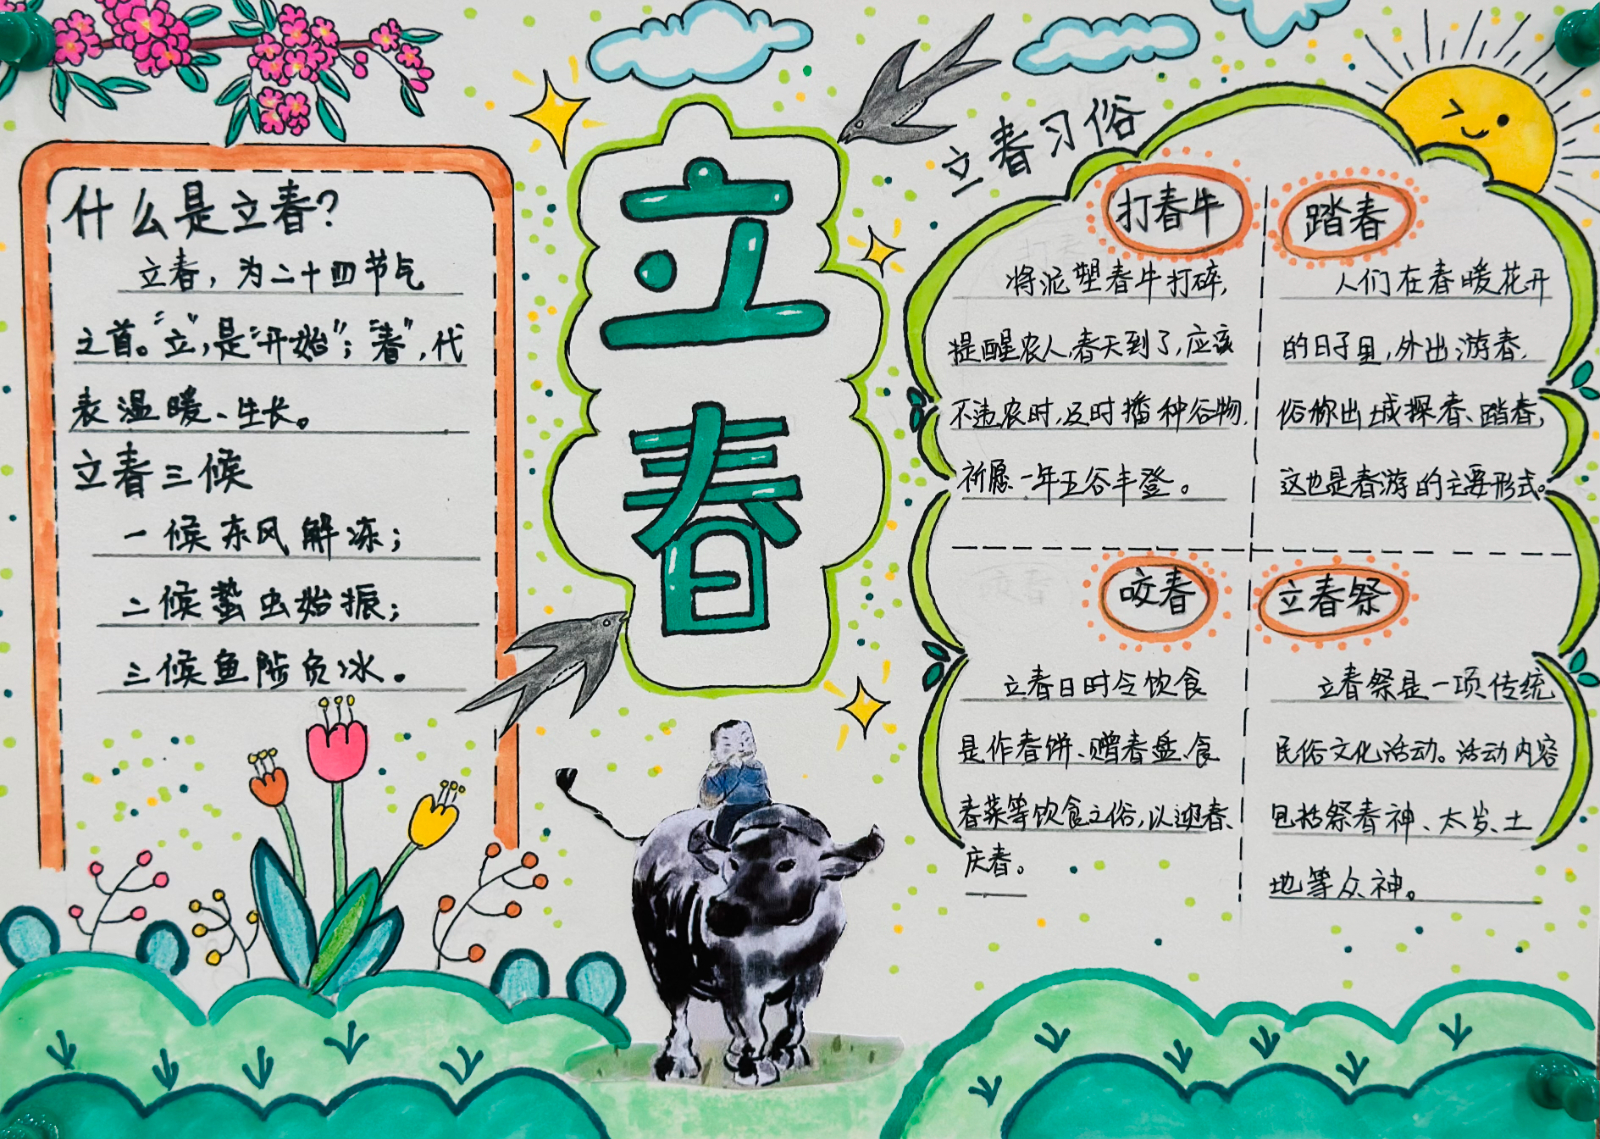 什么是立春?
立春，为二十四节气
之首。"立",是"开始"；"春",代
表温暖、生长。
立春三候
一候东风解冻；
二候蛰虫始振；
三候鱼陟负冰。
立
春
立春习俗
打春牛
将泥塑春牛打碎,
提醒农人春天到了,应该
不违农时,及时播种谷物,
祈愿一年五谷丰登。
踏春
人们在春暖花开
的日子里,外出游春,
俗称出城探春、踏春,
这也是春游的主要形式。
咬春
立春日时令饮食
是作春饼、赠春盘、食
春菜等饮食之俗,以迎春、
庆春。
立春祭
立春祭是一项传统
民俗文化活动。活动内容
包括祭春神、太岁、土
地等众神。